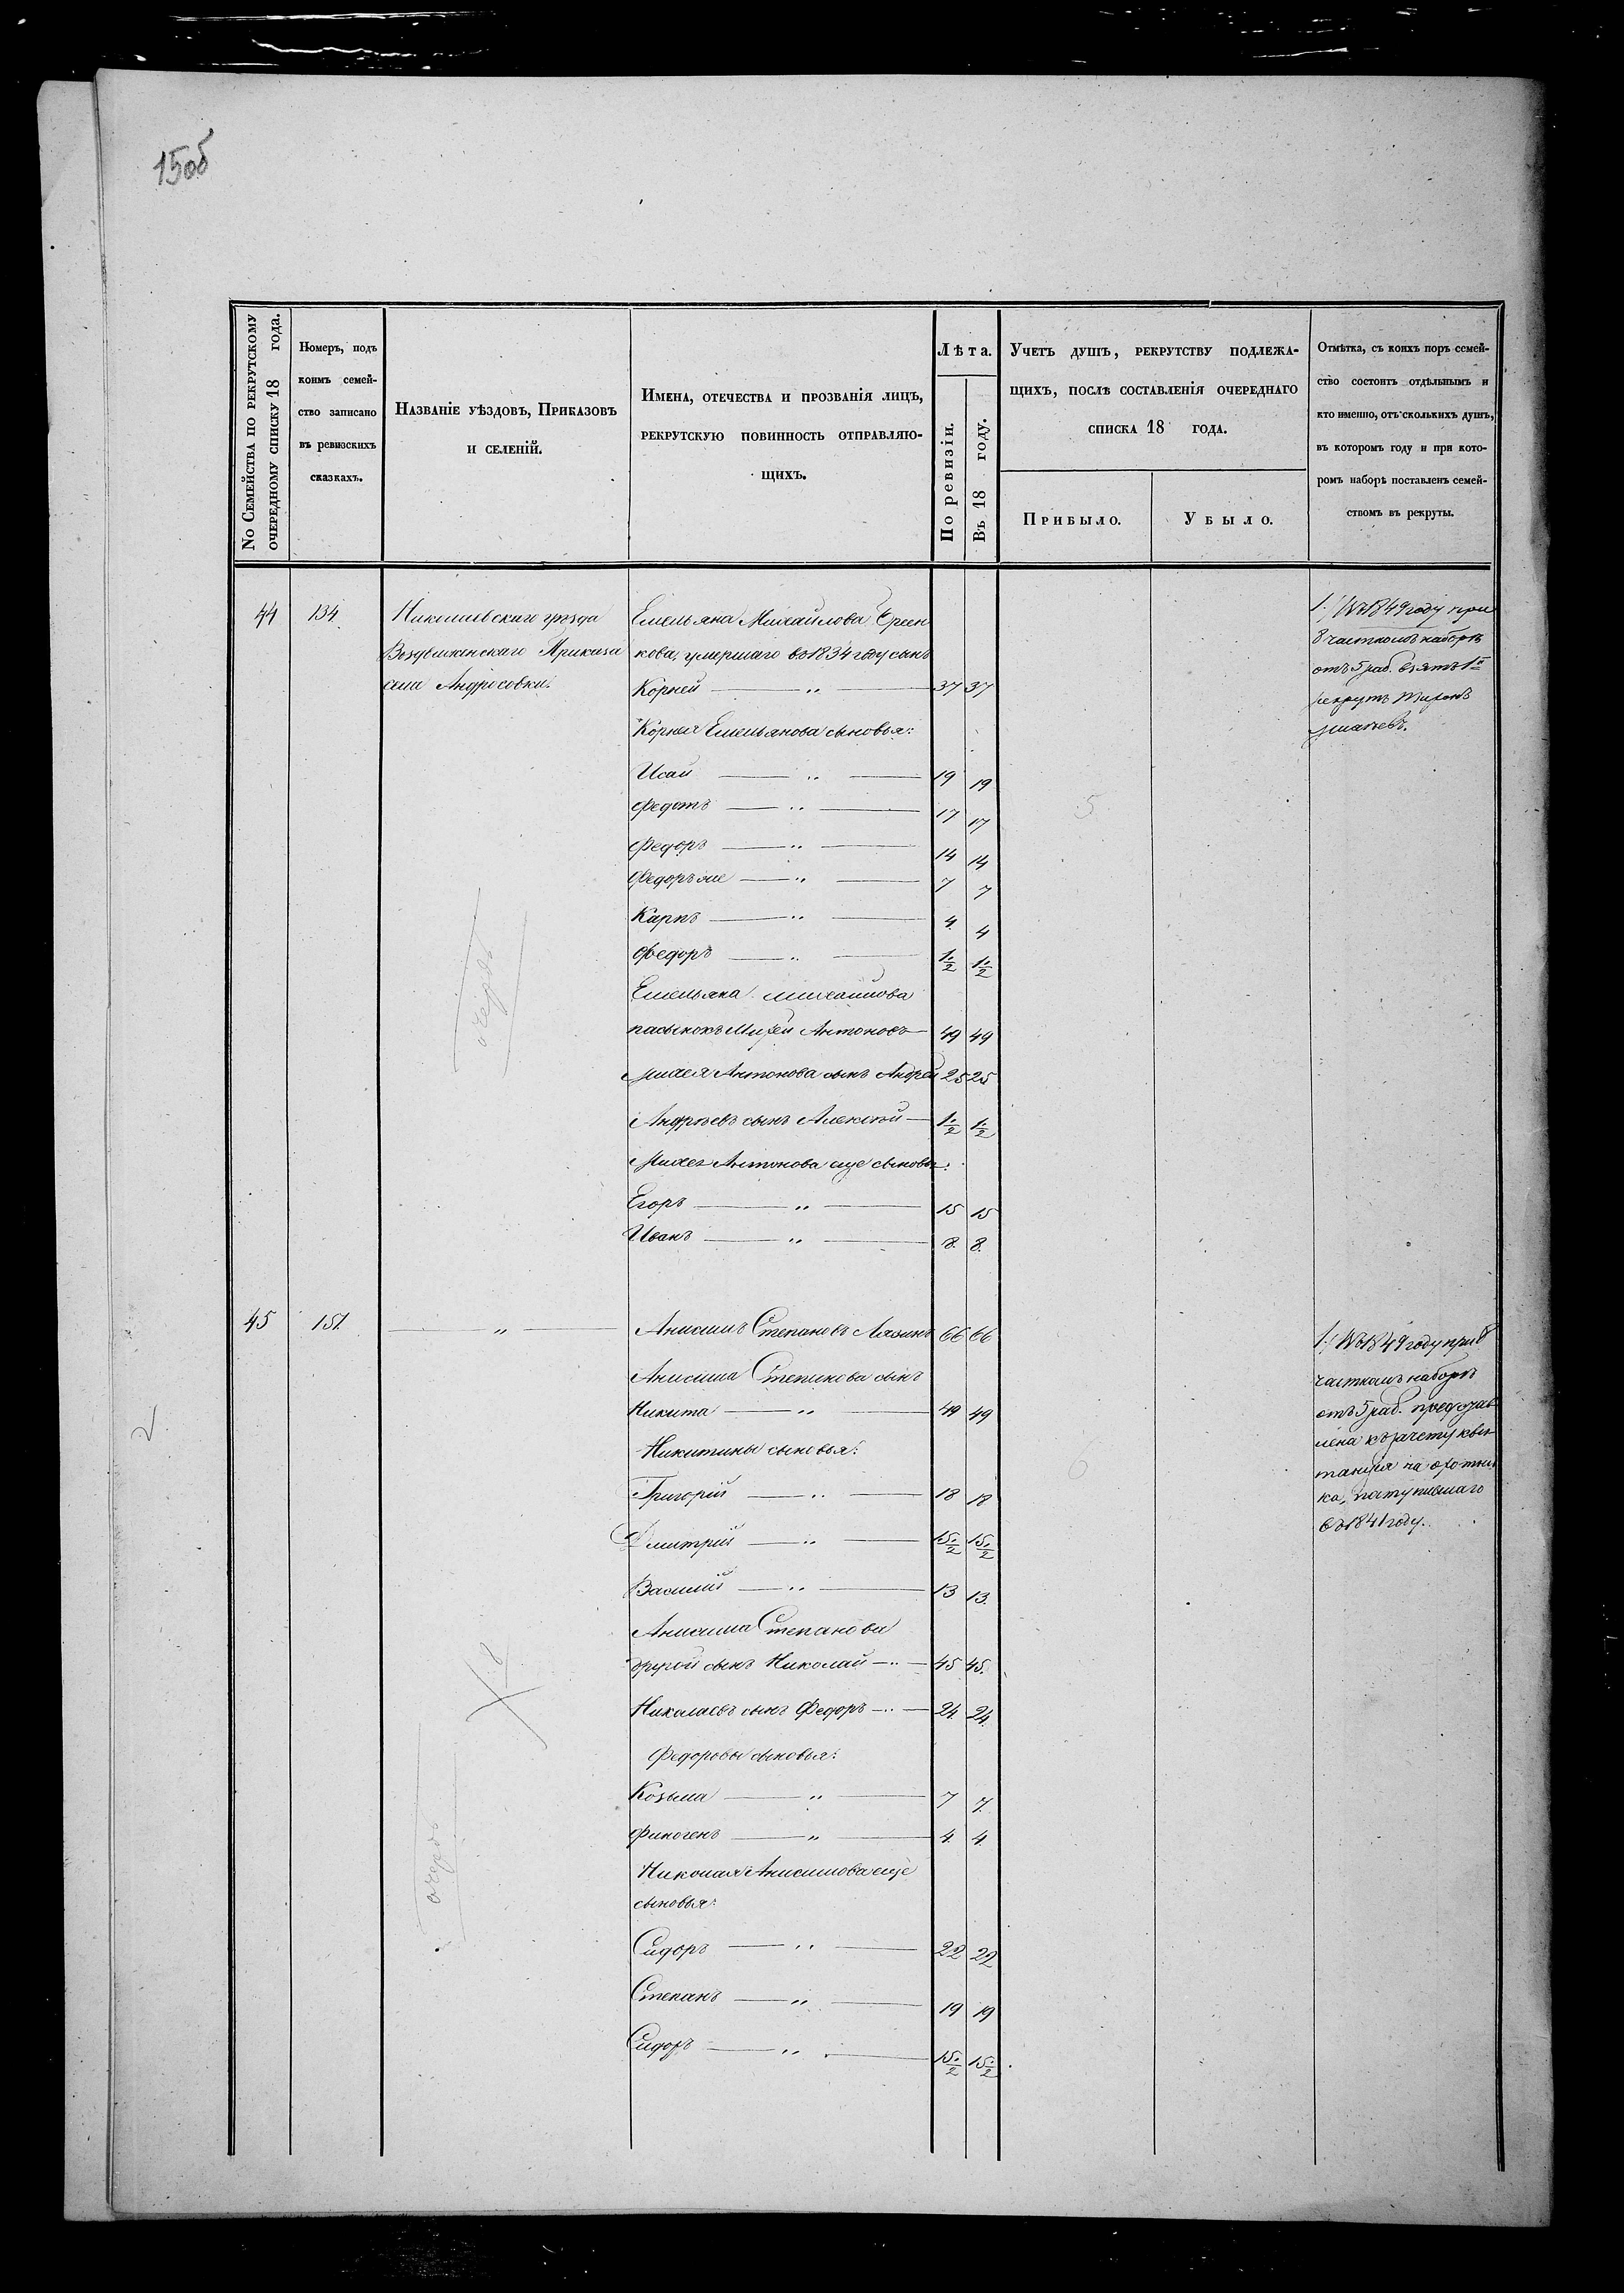 15об
No Семейства по рекрутскому
очередному списку 18 года.
Номеръ, подъ
коимъ семей-
ство записано
въ ревизскихъ
сказкахъ.
Названіе уѣздовъ, Приказовъ
и селеній.
Имена, отечества и прозванія лицъ,
рекрутскую повинность отправляю-
щихъ.
Лѣта.
По ревизіи.
Въ 18 году.
Учетъ душъ, рекрутству подлежа-
щихъ, послѣ составленія очереднаго
списка 18 года.
Прибыло.
Убыло.
Отмѣтка, съ коихъ поръ семей-
ство состоитъ отдѣльнымъ и
кто именно, отъ сколькихъ душъ,
въ которомъ году и при кото-
ромъ наборѣ поставленъ семей-
ствомъ въ рекруты.
44 134 Николаевскаго уѣзда
Воздвиженскаго Приказа
села Андросовки.
Емельяна Михайлова
кова, умершаго въ 1834 году сынъ
Корней — " — 37 37
Корнея Емельянова сыновья:
Исай — " — 19 19
Федотъ — " — 17 17
Федоръ — " — 14 14
Федоръ же — " — 7 7
Карпъ — " — 4 4
Федоръ — " — 1/2 1/2
Емельяна Михайлова
пасынокъ Михей Антоновъ — 49 49
Михея Антонова сынъ Андрей 25 25
Андреевъ сынъ Алексѣй — 1/2 1/2
Михея Антонова еще сыновья:
Егоръ — " — 15 15
Иванъ — " — 8. 8.
1./ Въ 1849 году при
8 частномъ наборѣ
отъ 5 раб. взятъ 1й
рекрутъ
5
очередь
45 151. — " —
Анисимъ Степановъ 66 66
Анисима Степанова сынъ
Никита — " — 49 49
Никитины сыновья:
Григорій — " — 18 18
Дмитрій — " — 15 1/2 15 1/2
Василій — " — 13 13.
Анисима Степанова
другой сынъ Николай — " — 45 45.
Николаевъ сынъ Федоръ — " — 24. 24.
Федоровы сыновья:
Козьма — " — 7 7.
Финогенъ — " — 4. 4.
Николая Анисимова еще
сыновья:
Сидоръ — " — 22 22
Степанъ — " — 19 19
Сидоръ — " — 15 1/2 15 1/2
1./ Въ 1849 году при 8
частномъ наборѣ
отъ 5 раб. представ
лена къ зачету кви
танція за охотни
ка, поступившаго
въ 1841 году.
6
очередь
2